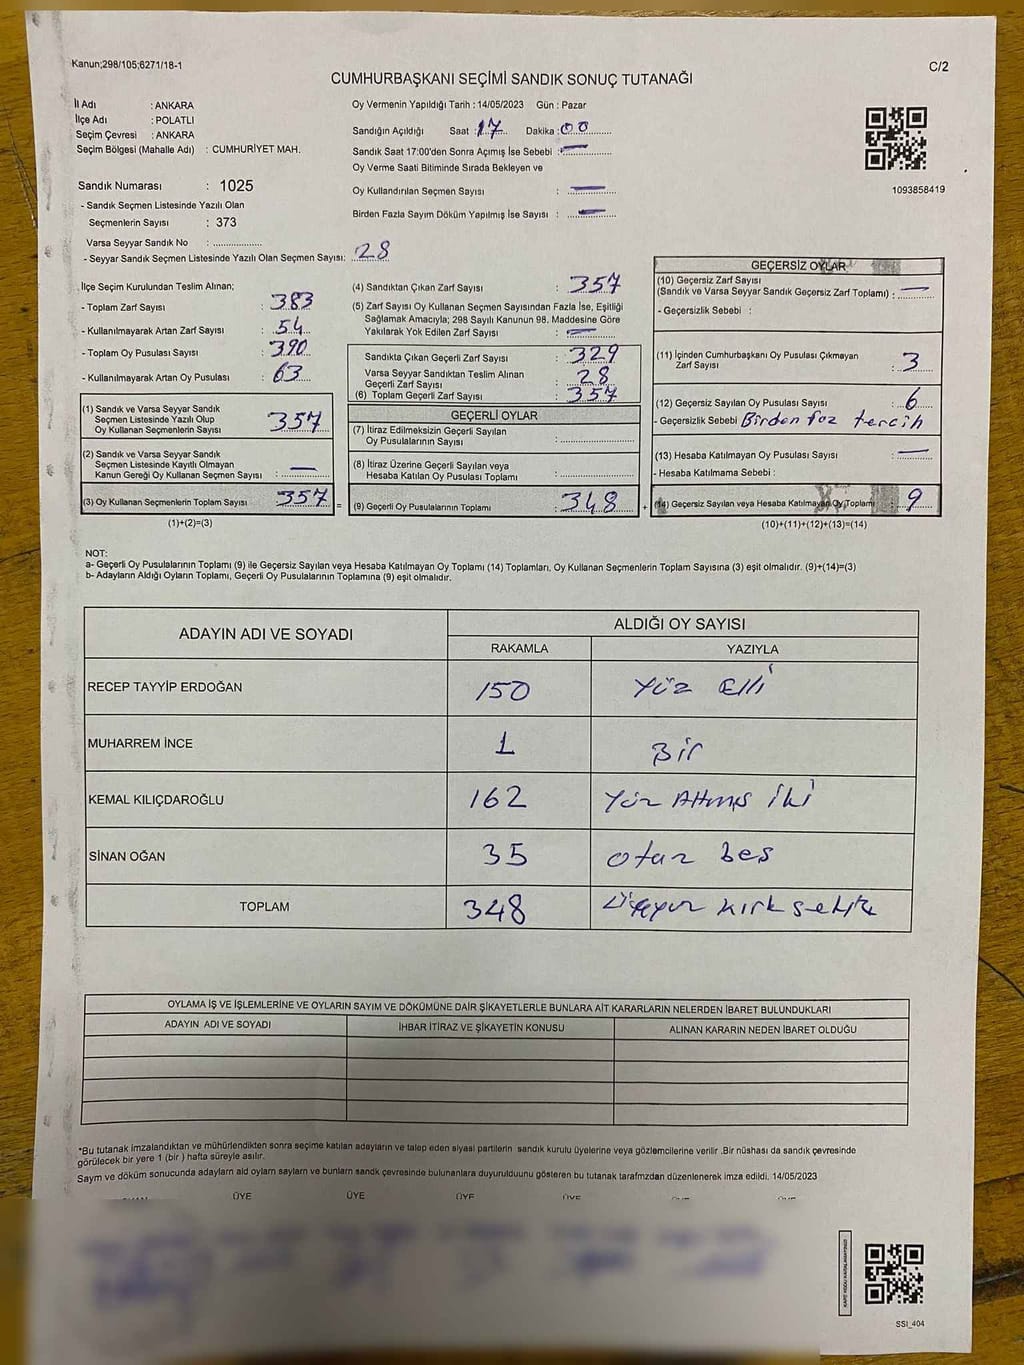 Kanun;298/105;6271/18-1
C/2
CUMHURBAŞKANI SEÇİMİ SANDIK SONUÇ TUTANAĞI
İl Adı : ANKARA
İlçe Adı : POLATLI
Seçim Çevresi : ANKARA
Seçim Bölgesi (Mahalle Adı) : CUMHURİYET MAH.
Sandık Numarası : 1025
- Sandık Seçmen Listesinde Yazılı Olan
Seçmenlerin Sayısı : 373
Varsa Seyyar Sandık No : ..................
- Seyyar Sandık Seçmen Listesinde Yazılı Olan Seçmen Sayısı: 28
Oy Vermenin Yapıldığı Tarih : 14/05/2023 Gün : Pazar
Sandığın Açıldığı Saat : 17 Dakika : 00
Sandık Saat 17:00'den Sonra Açımış İse Sebebi : —
Oy Verme Saati Bitiminde Sırada Bekleyen ve
Oy Kullandırılan Seçmen Sayısı : —
Birden Fazla Sayım Döküm Yapılmış İse Sayısı : —
1093858419
İlçe Seçim Kurulundan Teslim Alınan;
- Toplam Zarf Sayısı : 383
- Kullanılmayarak Artan Zarf Sayısı : 54
- Toplam Oy Pusulası Sayısı : 390
- Kullanılmayarak Artan Oy Pusulası : 63
(1) Sandık ve Varsa Seyyar Sandık
Seçmen Listesinde Yazılı Olup
Oy Kullanan Seçmenlerin Sayısı : 357
(2) Sandık ve Varsa Seyyar Sandık
Seçmen Listesinde Kayıtlı Olmayan
Kanun Gereği Oy Kullanan Seçmen Sayısı : —
(3) Oy Kullanan Seçmenlerin Toplam Sayısı : 357 =
(1)+(2)=(3)
(4) Sandıktan Çıkan Zarf Sayısı : 357
(5) Zarf Sayısı Oy Kullanan Seçmen Sayısından Fazla İse, Eşitliği
Sağlamak Amacıyla; 298 Sayılı Kanunun 98. Maddesine Göre
Yakılarak Yok Edilen Zarf Sayısı : —
Sandıkta Çıkan Geçerli Zarf Sayısı : 329
Varsa Seyyar Sandıktan Teslim Alınan
Geçerli Zarf Sayısı : 28
(6) Toplam Geçerli Zarf Sayısı : 357
GEÇERLİ OYLAR
(7) İtiraz Edilmeksizin Geçerli Sayılan
Oy Pusulalarının Sayısı : ..................
(8) İtiraz Üzerine Geçerli Sayılan veya
Hesaba Katılan Oy Pusulası Toplamı : ..................
(9) Geçerli Oy Pusulalarının Toplamı : 348 +
GEÇERSİZ OYLAR
(10) Geçersiz Zarf Sayısı
(Sandık ve Varsa Seyyar Sandık Geçersiz Zarf Toplamı) : —
- Geçersizlik Sebebi :
(11) İçinden Cumhurbaşkanı Oy Pusulası Çıkmayan
Zarf Sayısı : 3
(12) Geçersiz Sayılan Oy Pusulası Sayısı : 6
- Geçersizlik Sebebi Birden faz tercih
(13) Hesaba Katılmayan Oy Pusulası Sayısı : —
- Hesaba Katılmama Sebebi :
(14) Geçersiz Sayılan veya Hesaba Katılmayan Oy Toplamı : 9
(10)+(11)+(12)+(13)=(14)
NOT:
a- Geçerli Oy Pusulalarının Toplamı (9) ile Geçersiz Sayılan veya Hesaba Katılmayan Oy Toplamı (14) Toplamları, Oy Kullanan Seçmenlerin Toplam Sayısına (3) eşit olmalıdır. (9)+(14)=(3)
b- Adayların Aldığı Oyların Toplamı, Geçerli Oy Pusulalarının Toplamına (9) eşit olmalıdır.
ADAYIN ADI VE SOYADI ALDIĞI OY SAYISI
RAKAMLA YAZIYLA
RECEP TAYYİP ERDOĞAN 150 Yüz Elli
MUHARREM İNCE 1 Bir
KEMAL KILIÇDAROĞLU 162 Yüz Altmış iki
SİNAN OĞAN 35 otuz beş
TOPLAM 348 Üçyüz kırk sekiz
OYLAMA İŞ VE İŞLEMLERİNE VE OYLARIN SAYIM VE DÖKÜMÜNE DAİR ŞİKAYETLERLE BUNLARA AİT KARARLARIN NELERDEN İBARET BULUNDUKLARI
ADAYIN ADI VE SOYADI İHBAR İTİRAZ VE ŞİKAYETİN KONUSU ALINAN KARARIN NEDEN İBARET OLDUĞU
*Bu tutanak imzalandıktan ve mühürlendikten sonra seçime katılan adayların ve talep eden siyasi partilerin sandık kurulu üyelerine veya gözlemcilerine verilir .Bir nüshası da sandık çevresinde
görülecek bir yere 1 (bir ) hafta süreyle asılır.
Sayım ve döküm sonucunda adayların ald oyların sayların ve bunların sandk çevresinde bulunanlara duyurulduunu gösteren bu tutanak tarafmzdan düzenlenerek imza edildi. 14/05/2023
ÜYE ÜYE ÜYE ÜYE
SSİ_404